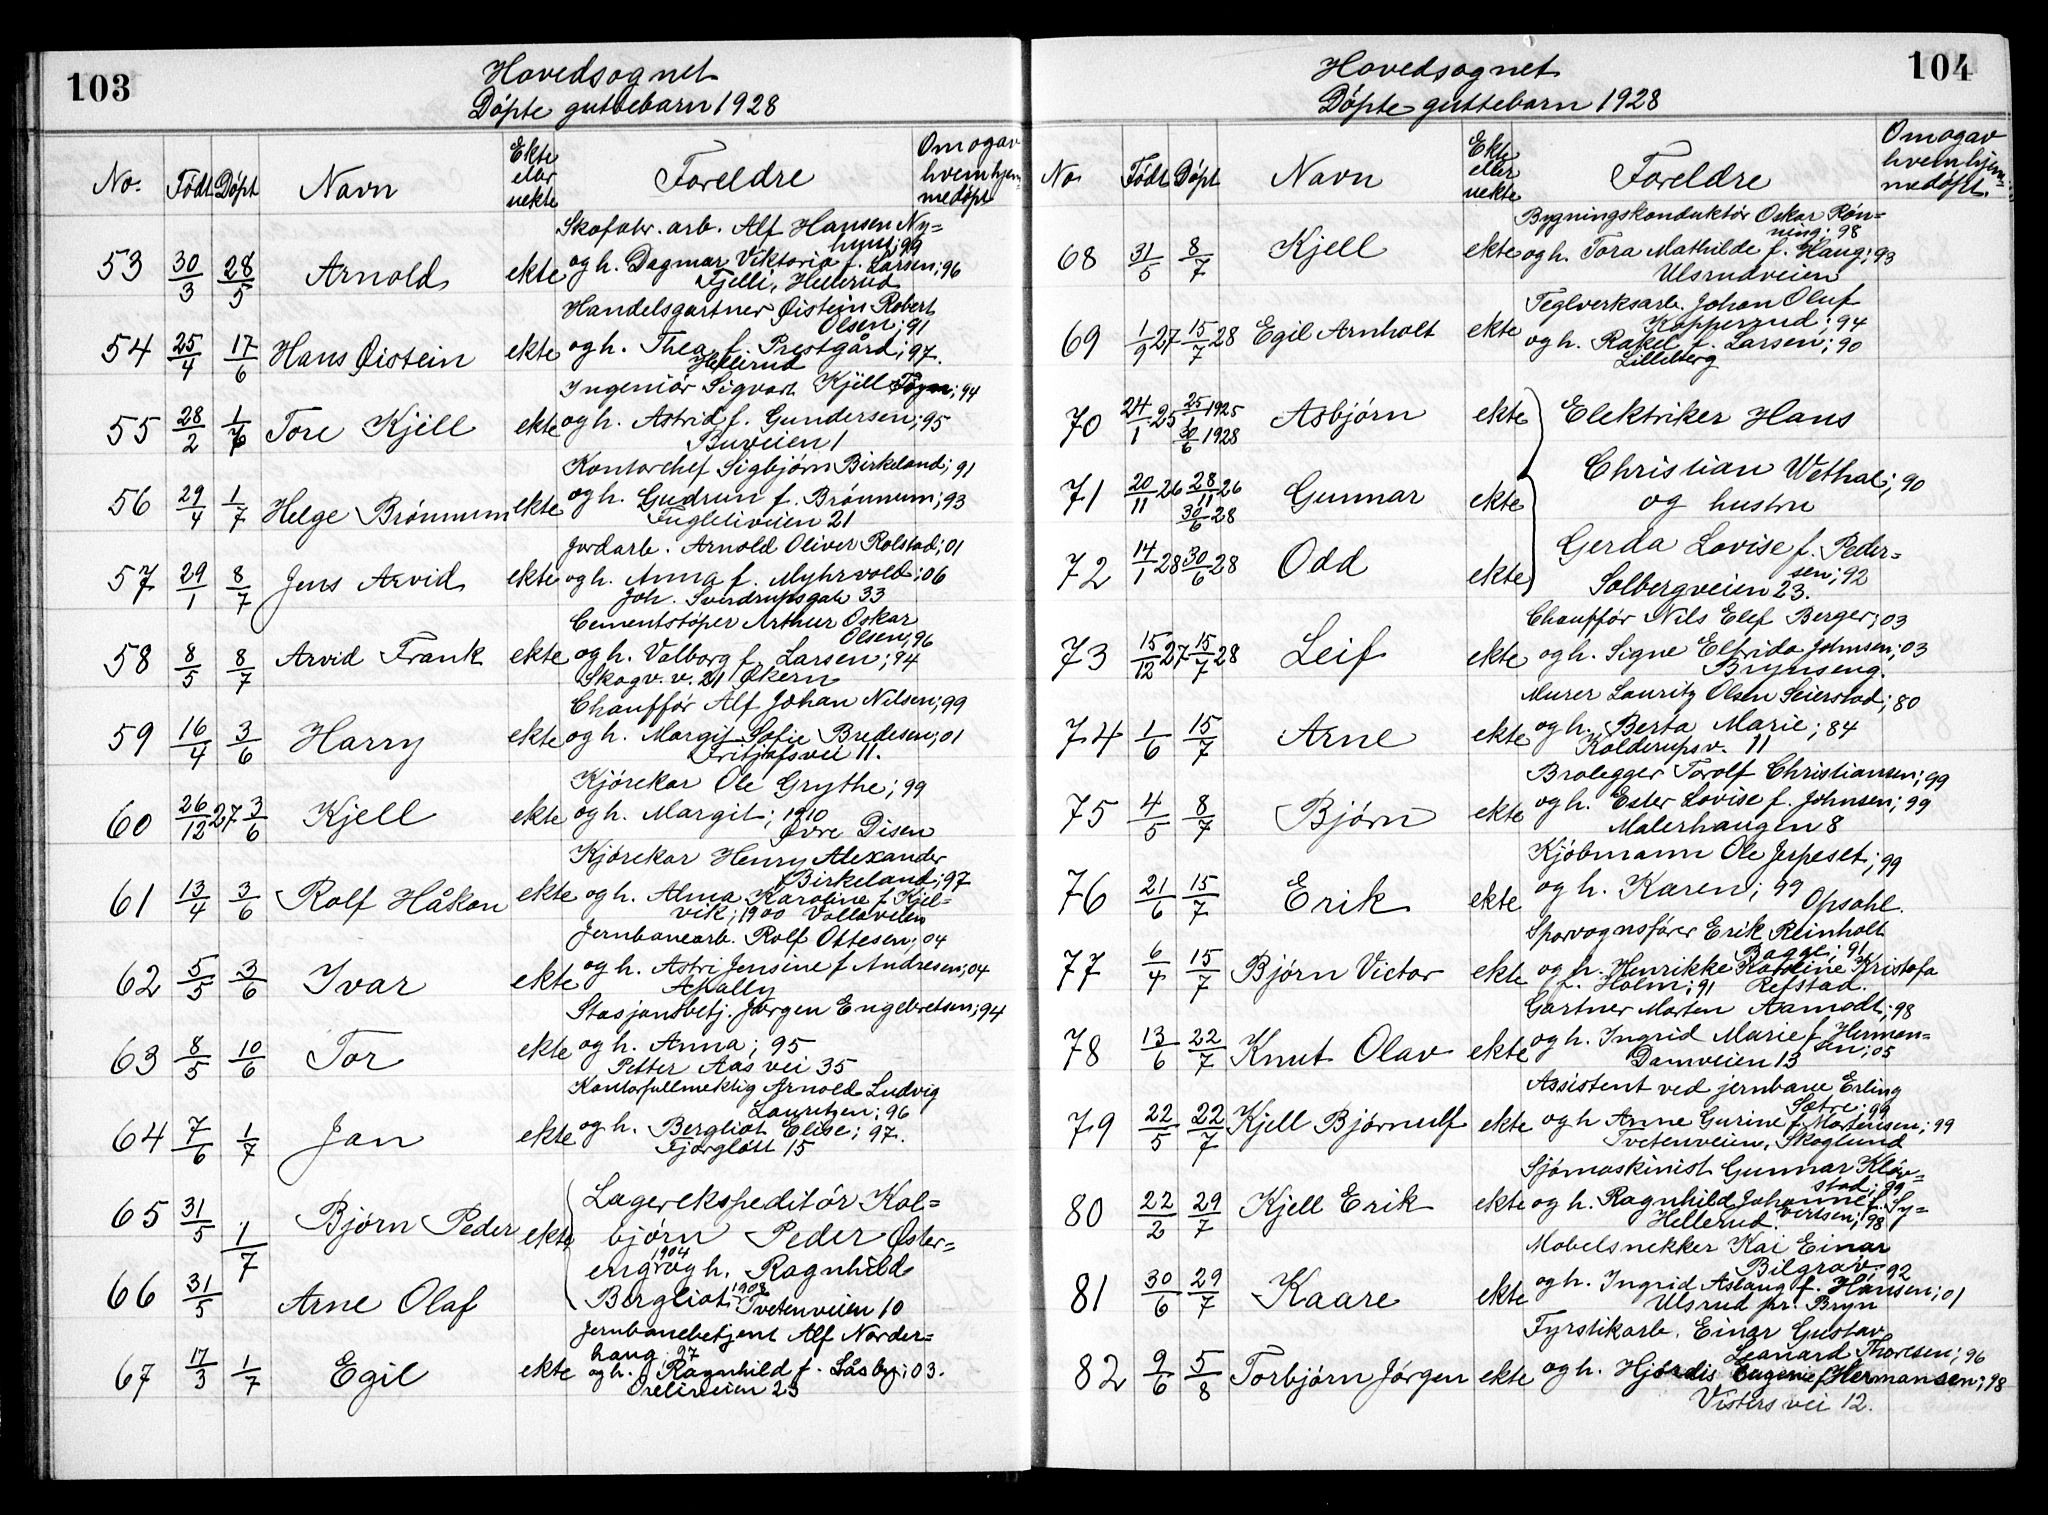 103
Hovedsognet
Döpte guttebarn 1928
No. Födt Döpt Navn Ekte eller uekte Foreldre Om og av hvem hjemmedöpt
Skofabr. arb. Alf Hansen Ny=
huus; 99
53 30/3 28/5 Arnold ekte og h. Dagmar Viktoria f. Larsen; 96
Fjelli, Hellerud
Handelsgartner Øistein Robert
Olsen; 91
54 25/4 17/6 Hans Øistein ekte og h. Thea f. Prestgård; 97.
Hellerud
Ingeniör Sigvart Kjell 94
55 28/2 1/7 Tore Kjell ekte og h. Astrid f. Gundersen; 95
Buveien 1
Kontorchef Sigbjörn Birkeland; 91
56 29/4 1/7 Helge Brönnum ekte og h. Gudrun f. Brönnum; 93
Fugleliveien 21
Jordarb. Arnold Oliver Rolstad; 01
57 29/1 8/7 Jens Arvid ekte og h. Anna f. Myhrvold; 06
Joh. Sverdrupsgate 33
Cementstöper Arthur Oskar
Olsen; 96
58 8/5 8/7 Arvid Frank ekte og h. Valborg f. Larsen; 94
Skogv. v. 21 Økern
Chaufför Alf Johan Nilsen; 99
59 16/4 3/6 Harry ekte og h. Margit Sofie Bredesen; 01
Fritjofsvei 11.
Kjörekar Ole Grythe; 99
60 26/12 27 3/6 Kjell ekte og h. Margit; 1910
Övre Disen
Kjörekar Henry Alexander
Birkeland; 97
61 13/4 3/6 Rolf Håkon ekte og h. Alma Karoline f. Kjel=
vik; 1900 Vollaveien
Jernbanearb. Rolf Ottesen; 04
62 5/5 3/6 Ivar ekte og h. Astri Jensine f Andresen; 04
Stasjonsbetj. Jörgen Engebretsen; 94
63 8/5 10/6 Tor ekte og h. Anna; 95
Petter Aas vei 35
Kontorfullmektig Arnold Ludvig
Lauritzen; 96
64 7/6 1/7 Jan ekte og h. Bergliot Elise; 97.
Fjörgløtt 15
65 31/5 1/7 Björn Peder ekte Lagerekspeditör Kol=
björn Peder Øster=
eng 1904 og h. Ragnhild
66 31/5 Arne Olaf Bergliot; 1908 Tvetenveien 10
Jernbanebetjent Alf Norder=
haug; 97
67 17/3 1/7 Egil ekte og h. Ragnhild f. Låsby; 03.
Oreliveien 23
104
Hovedsognet
Döpte guttebarn 1928
No Födt Döpt Navn Ekte eller uekte Foreldre Om og av hvem hjemmedöpt.
Bygningskonduktör Oskar Rön=
ning; 98
68 31/5 8/7 Kjell ekte og h. Tora Mathilde f. Haug; 93
Ulsrudveien
Teglverksarb. Johan Oluf
Kopperud; 94
69 1/9 27 15/7 28 Egil Arnholt ekte og h. Rakel f. Larsen; 90
Lilleberg
70 24/1 25 25/1 1925 30/6 1928 Asbjörn ekte Elektriker Hans
Christian Wethal; 90
71 20/11 26 28/11 26 30/6 28 Gunnar ekte og hustru
Gerda Lovise f. Peder=
sen; 92
72 14/1 28 30/6 28 Odd ekte Solbergveien 23.
Chaufför Nils Elef Berger; 03
73 15/12 27 15/7 28 Leif ekte og h. Signe Elfrida Johnsen; 03
Brynseng.
Murer Lauritz Olsen Seierstad; 80
74 1/6 15/7 Arne ekte og h. Berta Marie; 84
Kolderups v. 11
Brolegger Torolf Christiansen; 99
75 4/5 8/7 Björn ekte og h. Ester Lovise f. Johnsen; 99
Malerhaugen 8
Kjöbmann Ole Jerpeset; 99
76 21/6 15/7 Erik ekte og h. Karen; 99 Opsahl.
Sporvognsförer Erik Reinholt
Bagge; 91
77 6/4 15/7 Björn Victor ekte og h. Henrikke Karoline Kristofa
f. Holm; 91 Refstad.
Gartner Morten Aamodt; 98
78 13/6 22/7 Knut Olav ekte og h. Ingrid Marie f Herman=
sen; 05
Damveien 13
Assistent ved jernbane Erling
Sætre; 99
79 22/5 22/7 Kjell Björnulf ekte og h Anne Gurine f. Mortensen; 99
Tvetenveien, Skoglund
Sjömaskinist Gunnar Klöv=
stad; 99
80 22/2 29/7 Kjell Erik ekte og h. Ragnhild Johanne f. Sy=
vertsen; 98
Hellerud.
Mobelsnekker Kai Einar
Bilgrav 92
81 30/6 29/7 Kaare ekte og h. Ingrid Aslaug f. Hansen; 01
Ulsrud pr. Bryn
Fyrstikarb. Einar Gustav
Leonard Thoresen; 96
82 9/6 5/8 Torbjörn Jörgen ekte og h. Hjördis Eugenie f Hermansen; 98
Visters vei 12.